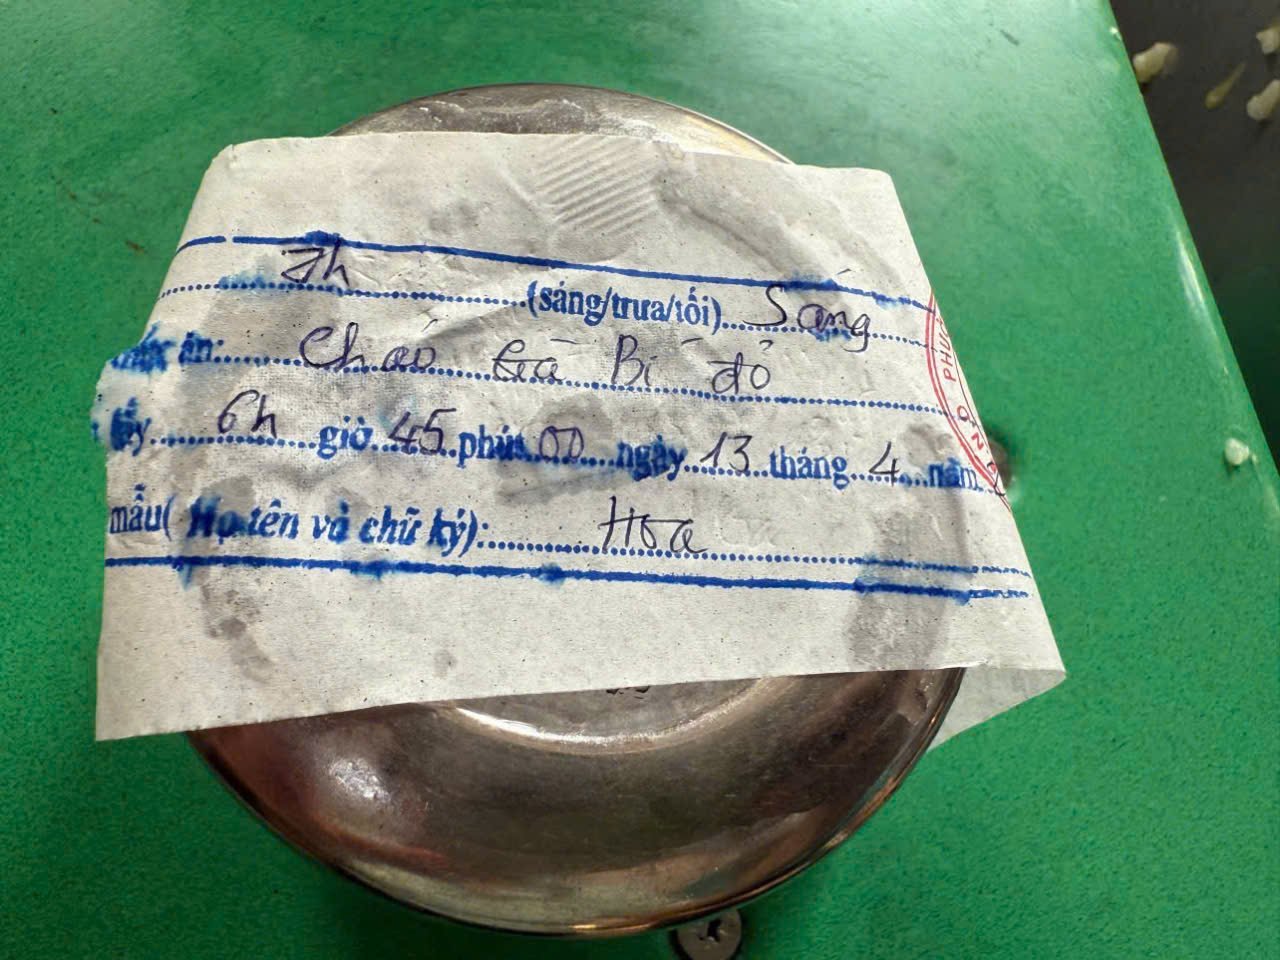 7h (sáng/trưa/tối) Sáng
ăn: Cháo Gà Bí đỏ
6h giờ 45 phút 00 ngày 13 tháng 4 năm
mẫu( Họ tên và chữ ký): Hoa